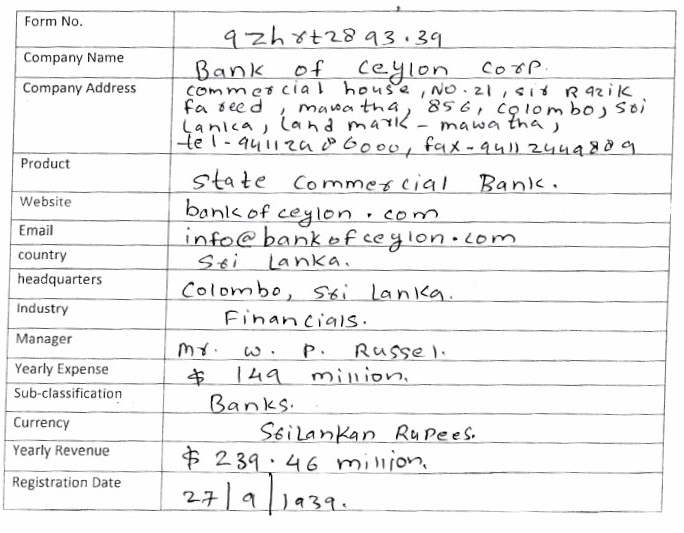 Form No. 9zhrt2893.39
Company Name Bank of Ceylon Corp.
Company Address commercial house, No.21, sir Razik
fareed, mawatha, 856, Colombo, Sri
Lanka, land mark - mawatha,
tel-94112406000, fax-94112449809
Product State Commercial Bank.
Website bankofceylon.com
Email info@bankofceylon.com
country Sri Lanka.
headquarters Colombo, Sri Lanka.
Industry Financials.
Manager Mr. W. P. Russel.
Yearly Expense $ 149 million.
Sub-classification Banks.
Currency SriLankan Rupees.
Yearly Revenue $ 239.46 million.
Registration Date 27/9/1939.